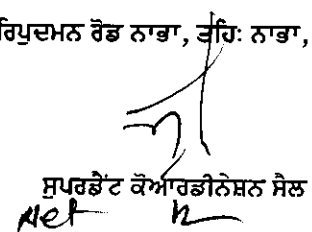 ਰਿਪੁਦਮਨ ਰੋਡ ਨਾਭਾ, ਤਹਿ: ਨਾਭਾ,
ਸੁਪਰਡੈਂਟ ਕੋਆਰਡੀਨੇਸ਼ਨ ਸੈਲ